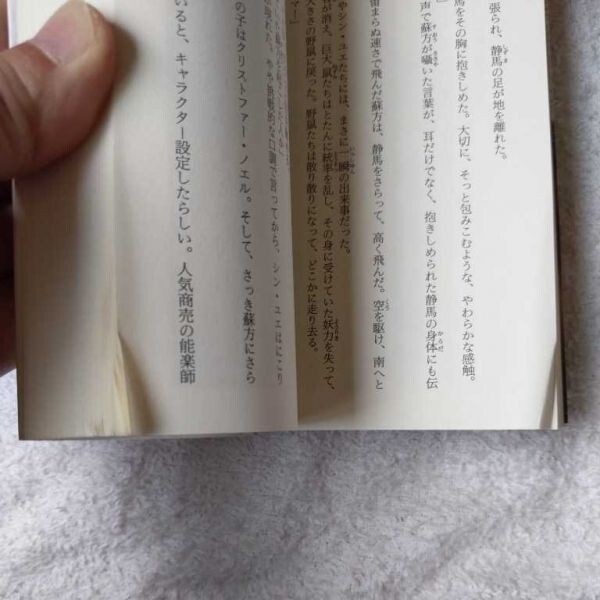 張られ、静馬の足が地を離れた。
馬をその胸に抱きしめた。大切に、そっと包みこむような、やわらかな感触。
声で蘇方が囁いた言葉が、耳だけでなく、抱きしめられた静馬の身体にも伝
」
留まらぬ速さで飛んだ蘇方は、静馬をさらって、高く飛んだ。空を駆け、南へと
やシン・ユエたちには、まさに一瞬の出来事だった。
が消え、巨大鼠たちはとたんに統率を乱し、その身に受けていた妖力を失って、
大きさの野鼠に戻った。野鼠たちは散り散りになって、どこかに走り去る。
マー」
口調で言ってから、シン・ユエはにこり
の子はクリストファー・ノエル。そして、さっき蘇方にさら
いると、キャラクター設定したらしい。人気商売の能楽師